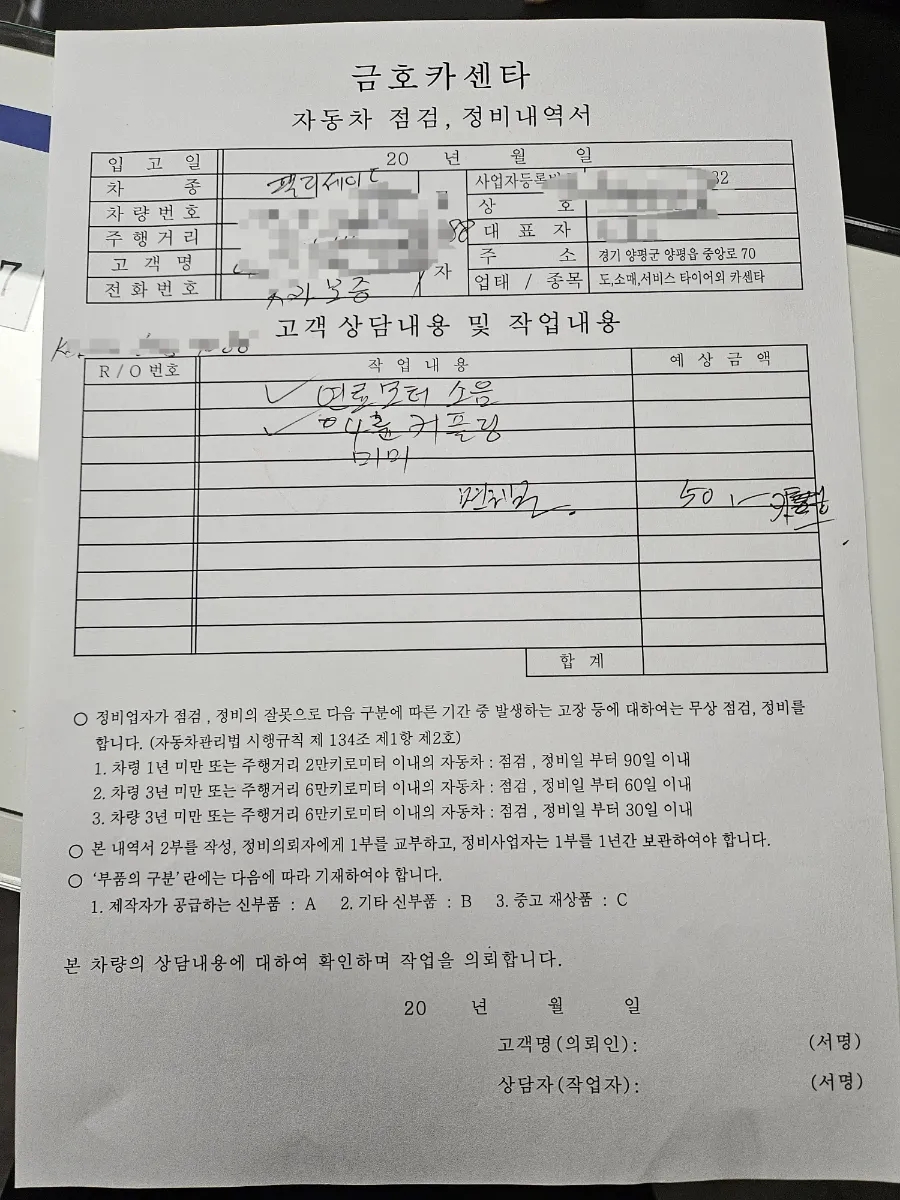 금호카센타
자동차 점검, 정비내역서
입 고 일 20 년 월 일
차 종 팰리세이드
사업자등록 32
차량번호
상 호
주행거리 88
대 표 자
고객명
주 소 경기 양평군 양평읍 중앙로 70
전화번호 차라보증
자
업태 / 종목 도,소매,서비스 타이어외 카센타
고객 상담내용 및 작업내용
R / O 번호 작 업 내 용 예 상 금 액
✓ 연료모터 소음
✓ 4륜 커플링
미미
면책금 50
합 계
○ 정비업자가 점검 , 정비의 잘못으로 다음 구분에 따른 기간 중 발생하는 고장 등에 대하여는 무상 점검, 정비를
합니다. (자동차관리법 시행규칙 제 134조 제1항 제2호)
1. 차령 1년 미만 또는 주행거리 2만키로미터 이내의 자동차 : 점검 , 정비일 부터 90일 이내
2. 차령 3년 미만 또는 주행거리 6만키로미터 이내의 자동차 : 점검 , 정비일 부터 60일 이내
3. 차량 3년 미만 또는 주행거리 6만키로미터 이내의 자동차 : 점검 , 정비일 부터 30일 이내
○ 본 내역서 2부를 작성, 정비의뢰자에게 1부를 교부하고, 정비사업자는 1부를 1년간 보관하여야 합니다.
○ '부품의 구분' 란에는 다음에 따라 기재하여야 합니다.
1. 제작자가 공급하는 신부품 : A 2. 기타 신부품 : B 3. 중고 재상품 : C
본 차량의 상담내용에 대하여 확인하며 작업을 의뢰합니다.
20 년 월 일
고객명(의뢰인): (서명)
상담자(작업자): (서명)